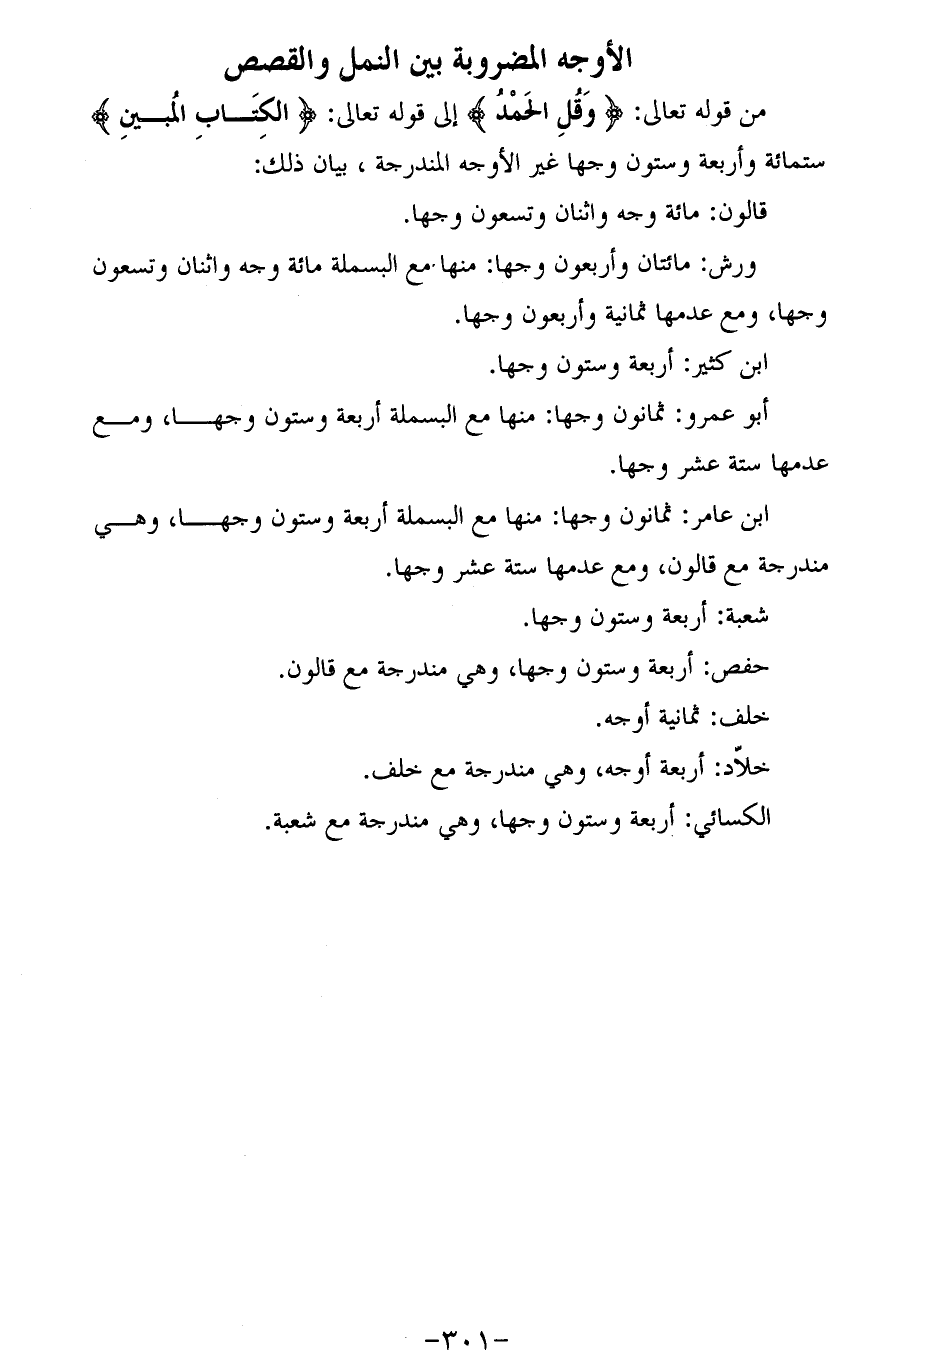 الأوجه المضروبة بين النمل والقصص
من قوله تعالى: ﴿ وَقُلِ الحَمْدُ ﴾ إلى قوله تعالى: ﴿ الكِتَـــابِ المُبـــينِ ﴾
ستمائة وأربعة وستون وجها غير الأوجه المندرجة ، بيان ذلك:
قالون: مائة وجه واثنان وتسعون وجها.
ورش: مائتان وأربعون وجها: منها مع البسملة مائة وجه واثنان وتسعون
وجها، ومع عدمها ثمانية وأربعون وجها.
ابن كثير: أربعة وستون وجها.
أبو عمرو: ثمانون وجها: منها مع البسملة أربعة وستون وجهـــا، ومـــع
عدمها ستة عشر وجها.
ابن عامر: ثمانون وجها: منها مع البسملة أربعة وستون وجهـــا، وهـــي
مندرجة مع قالون، ومع عدمها ستة عشر وجها.
شعبة: أربعة وستون وجها.
حفص: أربعة وستون وجها، وهي مندرجة مع قالون.
خلف: ثمانية أوجه.
خلاّد: أربعة أوجه، وهي مندرجة مع خلف.
الكسائي: أربعة وستون وجها، وهي مندرجة مع شعبة.
-٣٠١-